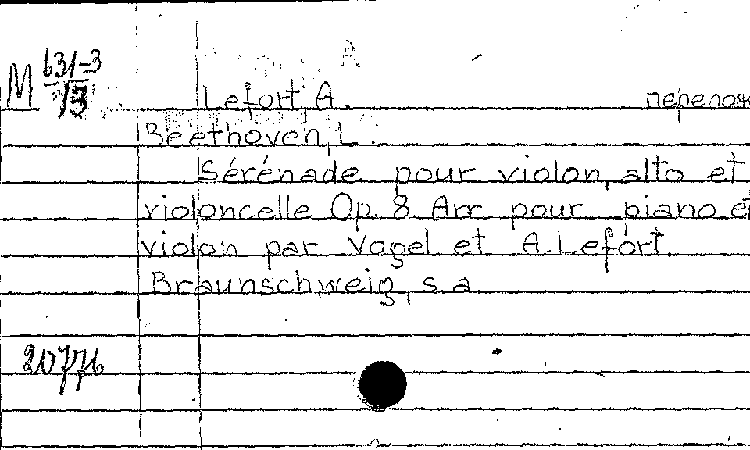 A
M 631-3
13
Lefort A. перелож
Beethoven, L.
Sérénade pour violon, alto et
violoncelle Op. 8 Arr. pour piano et
violon par Vagel et A. Lefort.
Braunschweig, s. a.
20776